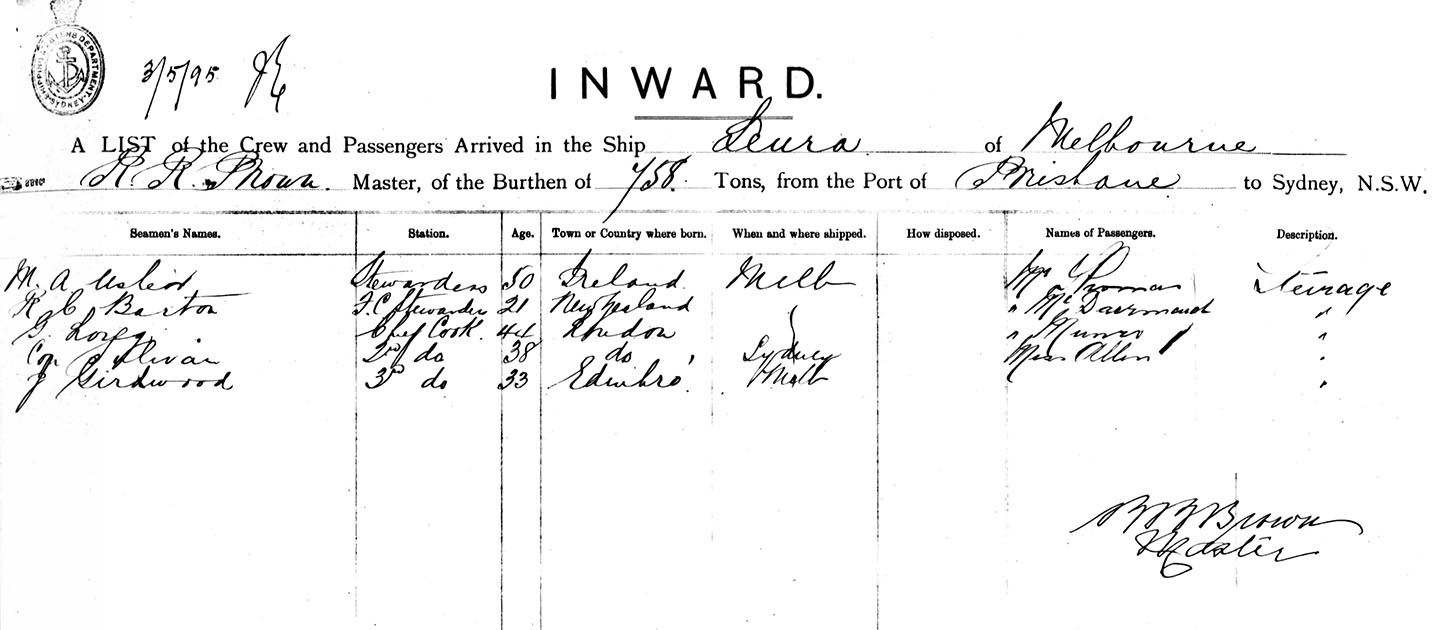 SHIPPING MASTERS DEPARTMENT SYDNEY
3/5/95
INWARD.
A LIST of the Crew and Passengers Arrived in the Ship Leura of Melbourne
R. R. Brown. Master, of the Burthen of 758. Tons, from the Port of Brisbane to Sydney, N.S.W.
Seamen's Names. Station. Age. Town or Country where born. When and where shipped. How disposed. Names of Passengers. Description.
M. A Stewardess 50 Ireland Melb Mr Thomas Steerage
R C Barton F.C. Stewardess 21 New Zealand " McDearmand "
G. Chef Cook. 44 London " Munro "
2nd do 38 do Sydney Miss Allen "
J Girdwood 3rd do 33 Edinbro' Melb "
Brown
Master